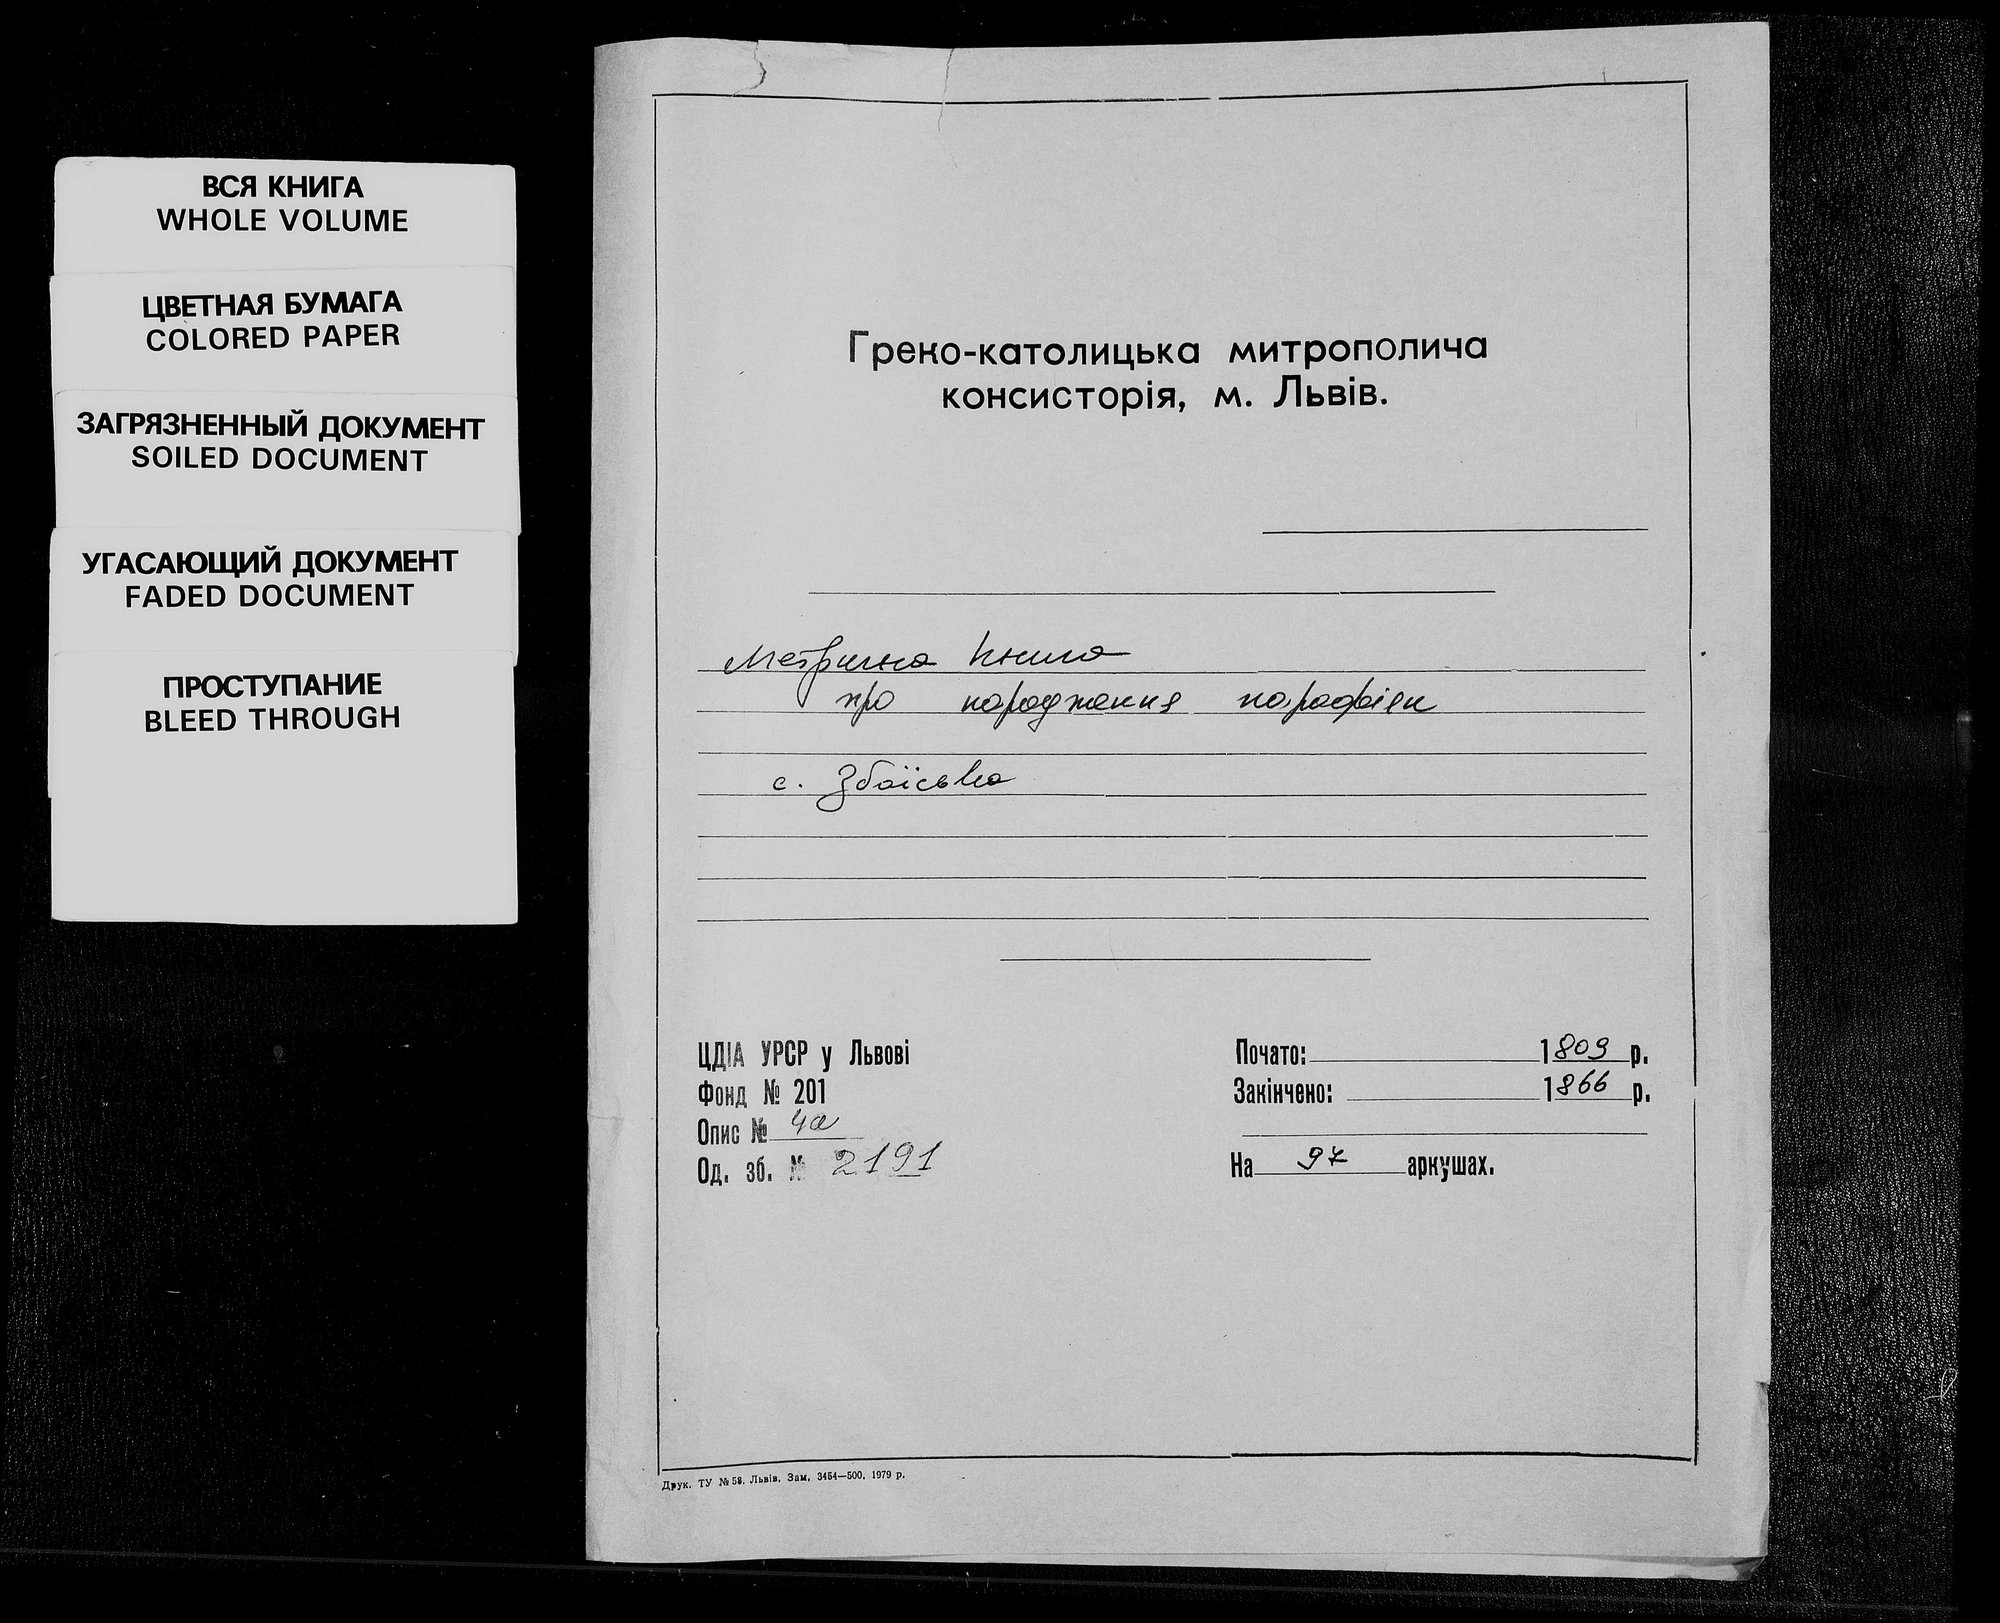 ВСЯ КНИГА
WHOLE VOLUME
ЦВЕТНАЯ БУМАГА
COLORED PAPER
ЗАГРЯЗНЕННЫЙ ДОКУМЕНТ
SOILED DOCUMENT
УГАСАЮЩИЙ ДОКУМЕНТ
FADED DOCUMENT
ПРОСТУПАНИЕ
BLEED THROUGH
Греко-католицька митрополича
консисторія, м. Львів.
Метрична книга
про народження парафіян
с. Збоїська
ЦДІА УРСР у Львові
Фонд № 201
Опис № 4а
Од. зб. № 2191
Почато: 1809 р.
Закінчено: 1866 р.
На 97 аркушах.
Друк. ТУ № 58. Львів. Зам. 3454—500. 1979 р.